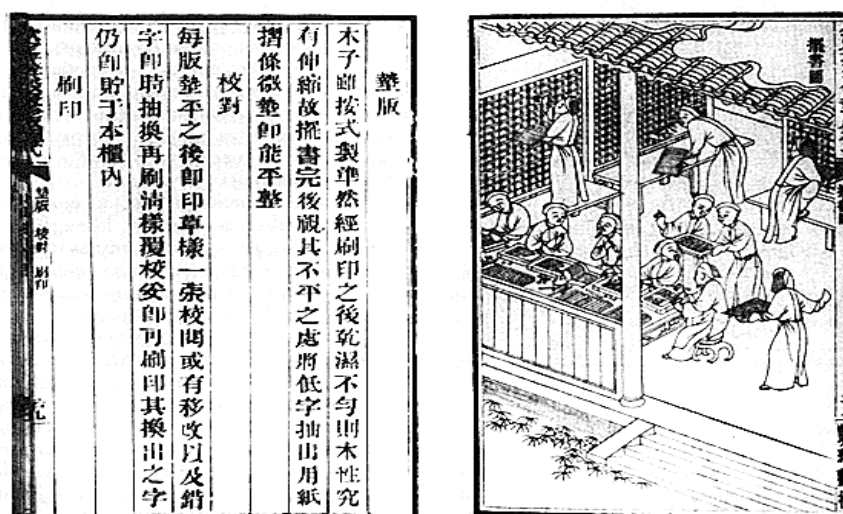 擺書圖
墊版
木子雖按式製準然經刷印之後乾濕不勻則木性究
有伸縮故擺書完後視其不平之處將低字抽出用紙
摺條微墊卽能平整
校對
每版墊平之後卽印草樣一張校閱或有移改以及錯
字卽時抽換再刷清樣覆校妥卽可刷印其換出之字
仍卽貯于本櫃內
刷印
墊版 校對 刷印